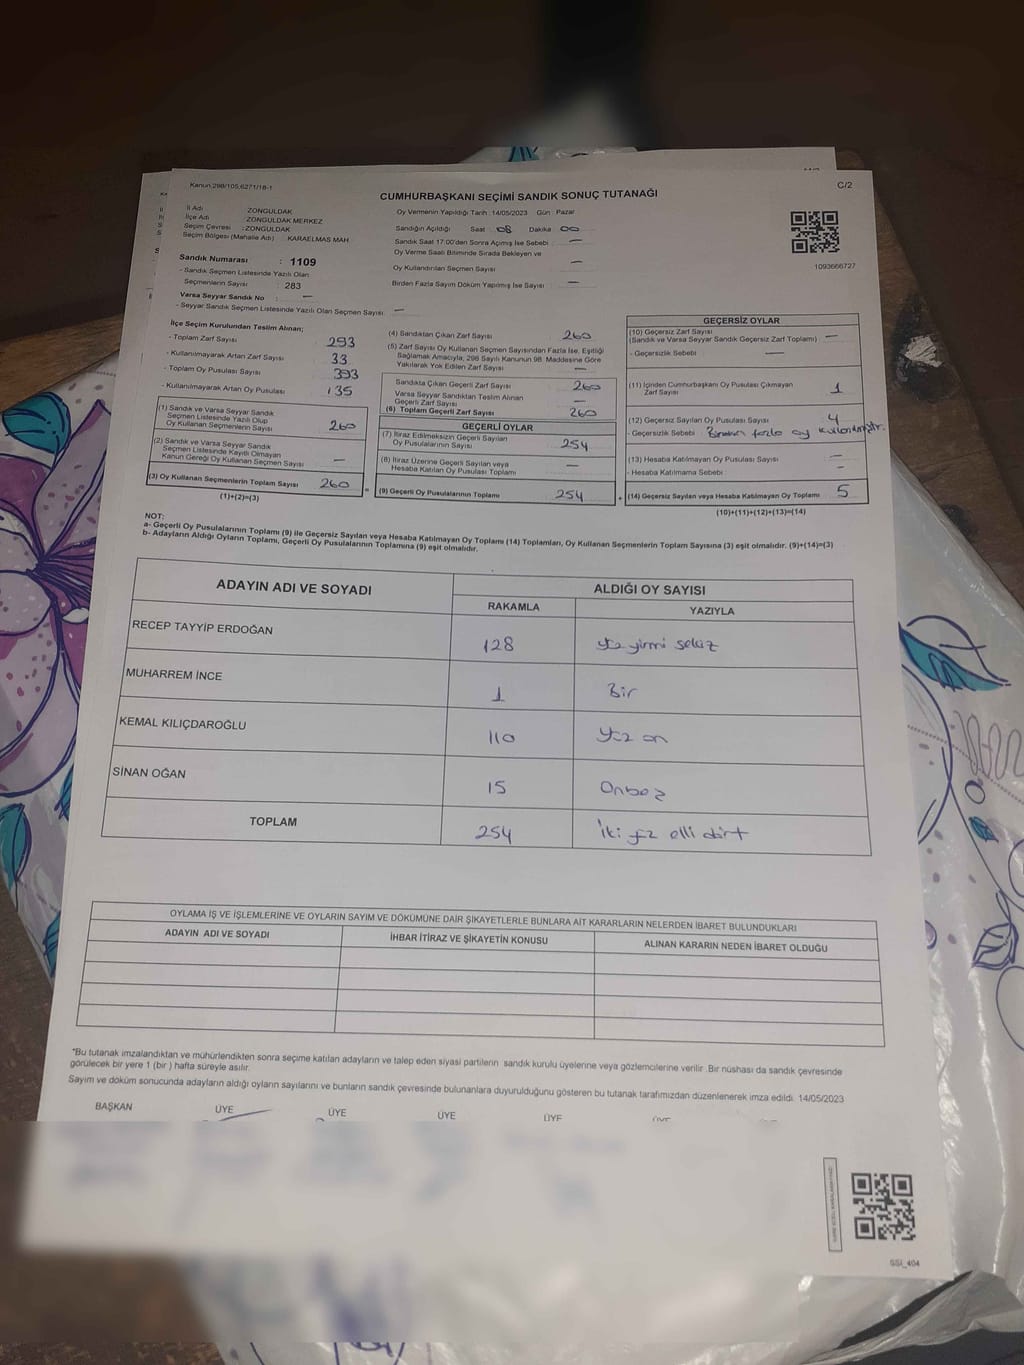 Kanun 298/105,6271/18-1
C/2
CUMHURBAŞKANI SEÇİMİ SANDIK SONUÇ TUTANAĞI
İli Adı : ZONGULDAK
İlçe Adı : ZONGULDAK MERKEZ
Seçim Çevresi : ZONGULDAK
Seçim Bölgesi (Mahalle Adı) KARAELMAS MAH.
Oy Vermenin Yapıldığı Tarih :14/05/2023 Gün : Pazar
Sandığın Açıldığı Saat 08 Dakika 00
Sandık Saat 17:00'dan Sonra Açılmış İse Sebebi —
Oy Verme Saati Bitiminde Sırada Bekleyen ve
Oy Kullandırılan Seçmen Sayısı —
Birden Fazla Sayım Döküm Yapılmış İse Sayısı —
1093666727
Sandık Numarası : 1109
- Sandık Seçmen Listesinde Yazılı Olan
Seçmenlerin Sayısı : 283
Varsa Seyyar Sandık No : —
- Seyyar Sandık Seçmen Listesinde Yazılı Olan Seçmen Sayısı: —
İlçe Seçim Kurulundan Teslim Alınan;
- Toplam Zarf Sayısı 293
- Kullanılmayarak Artan Zarf Sayısı 33
- Toplam Oy Pusulası Sayısı 393
- Kullanılmayarak Artan Oy Pusulası 135
(1) Sandık ve Varsa Seyyar Sandık
Seçmen Listesinde Yazılı Olup
Oy Kullanan Seçmenlerin Sayısı 260
(2) Sandık ve Varsa Seyyar Sandık
Seçmen Listesinde Kayıtlı Olmayan
Kanun Gereği Oy Kullanan Seçmen Sayısı —
(3) Oy Kullanan Seçmenlerin Toplam Sayısı 260
(1)+(2)=(3)
(4) Sandıktan Çıkan Zarf Sayısı 260
(5) Zarf Sayısı Oy Kullanan Seçmen Sayısından Fazla İse, Eşitliği
Sağlamak Amacıyla, 298 Sayılı Kanunun 98. Maddesine Göre
Yakılarak Yok Edilen Zarf Sayısı —
Sandıkta Çıkan Geçerli Zarf Sayısı 260
Varsa Seyyar Sandıktan Teslim Alınan
Geçerli Zarf Sayısı —
(6) Toplam Geçerli Zarf Sayısı 260
GEÇERLİ OYLAR
(7) İtiraz Edilmeksizin Geçerli Sayılan
Oy Pusulalarının Sayısı 254
(8) İtiraz Üzerine Geçerli Sayılan veya
Hesaba Katılan Oy Pusulası Toplamı —
= (9) Geçerli Oy Pusulalarının Toplamı 254 +
GEÇERSİZ OYLAR
(10) Geçersiz Zarf Sayısı
(Sandık ve Varsa Seyyar Sandık Geçersiz Zarf Toplamı) —
- Geçersizlik Sebebi —
(11) İçinden Cumhurbaşkanı Oy Pusulası Çıkmayan
Zarf Sayısı 1
(12) Geçersiz Sayılan Oy Pusulası Sayısı 4
- Geçersizlik Sebebi Birden fazla oy kullanılmıştır.
(13) Hesaba Katılmayan Oy Pusulası Sayısı —
- Hesaba Katılmama Sebebi —
(14) Geçersiz Sayılan veya Hesaba Katılmayan Oy Toplamı 5
(10)+(11)+(12)+(13)=(14)
NOT:
a- Geçerli Oy Pusulalarının Toplamı (9) ile Geçersiz Sayılan veya Hesaba Katılmayan Oy Toplamı (14) Toplamları, Oy Kullanan Seçmenlerin Toplam Sayısına (3) eşit olmalıdır. (9)+(14)=(3)
b- Adayların Aldığı Oyların Toplamı, Geçerli Oy Pusulalarının Toplamına (9) eşit olmalıdır.
ADAYIN ADI VE SOYADI ALDIĞI OY SAYISI
RAKAMLA YAZIYLA
RECEP TAYYİP ERDOĞAN 128 yüz yirmi sekiz
MUHARREM İNCE 1 Bir
KEMAL KILIÇDAROĞLU 110 Yüz on
SİNAN OĞAN 15 Onbeş
TOPLAM 254 iki yüz elli dört
OYLAMA İŞ VE İŞLEMLERİNE VE OYLARIN SAYIM VE DÖKÜMÜNE DAİR ŞİKAYETLERLE BUNLARA AİT KARARLARIN NELERDEN İBARET BULUNDUKLARI
ADAYIN ADI VE SOYADI İHBAR İTİRAZ VE ŞİKAYETİN KONUSU ALINAN KARARIN NEDEN İBARET OLDUĞU
*Bu tutanak imzalandıktan ve mühürlendikten sonra seçime katılan adayların ve talep eden siyasi partilerin sandık kurulu üyelerine veya gözlemcilerine verilir .Bir nüshası da sandık çevresinde
görülecek bir yere 1 (bir ) hafta süreyle asılır.
Sayım ve döküm sonucunda adayların aldığı oyların sayılarını ve bunların sandık çevresinde bulunanlara duyurulduğunu gösteren bu tutanak tarafımızdan düzenlenerek imza edildi. 14/05/2023
BAŞKAN ÜYE ÜYE ÜYE ÜYE ÜYE
SSİ_404